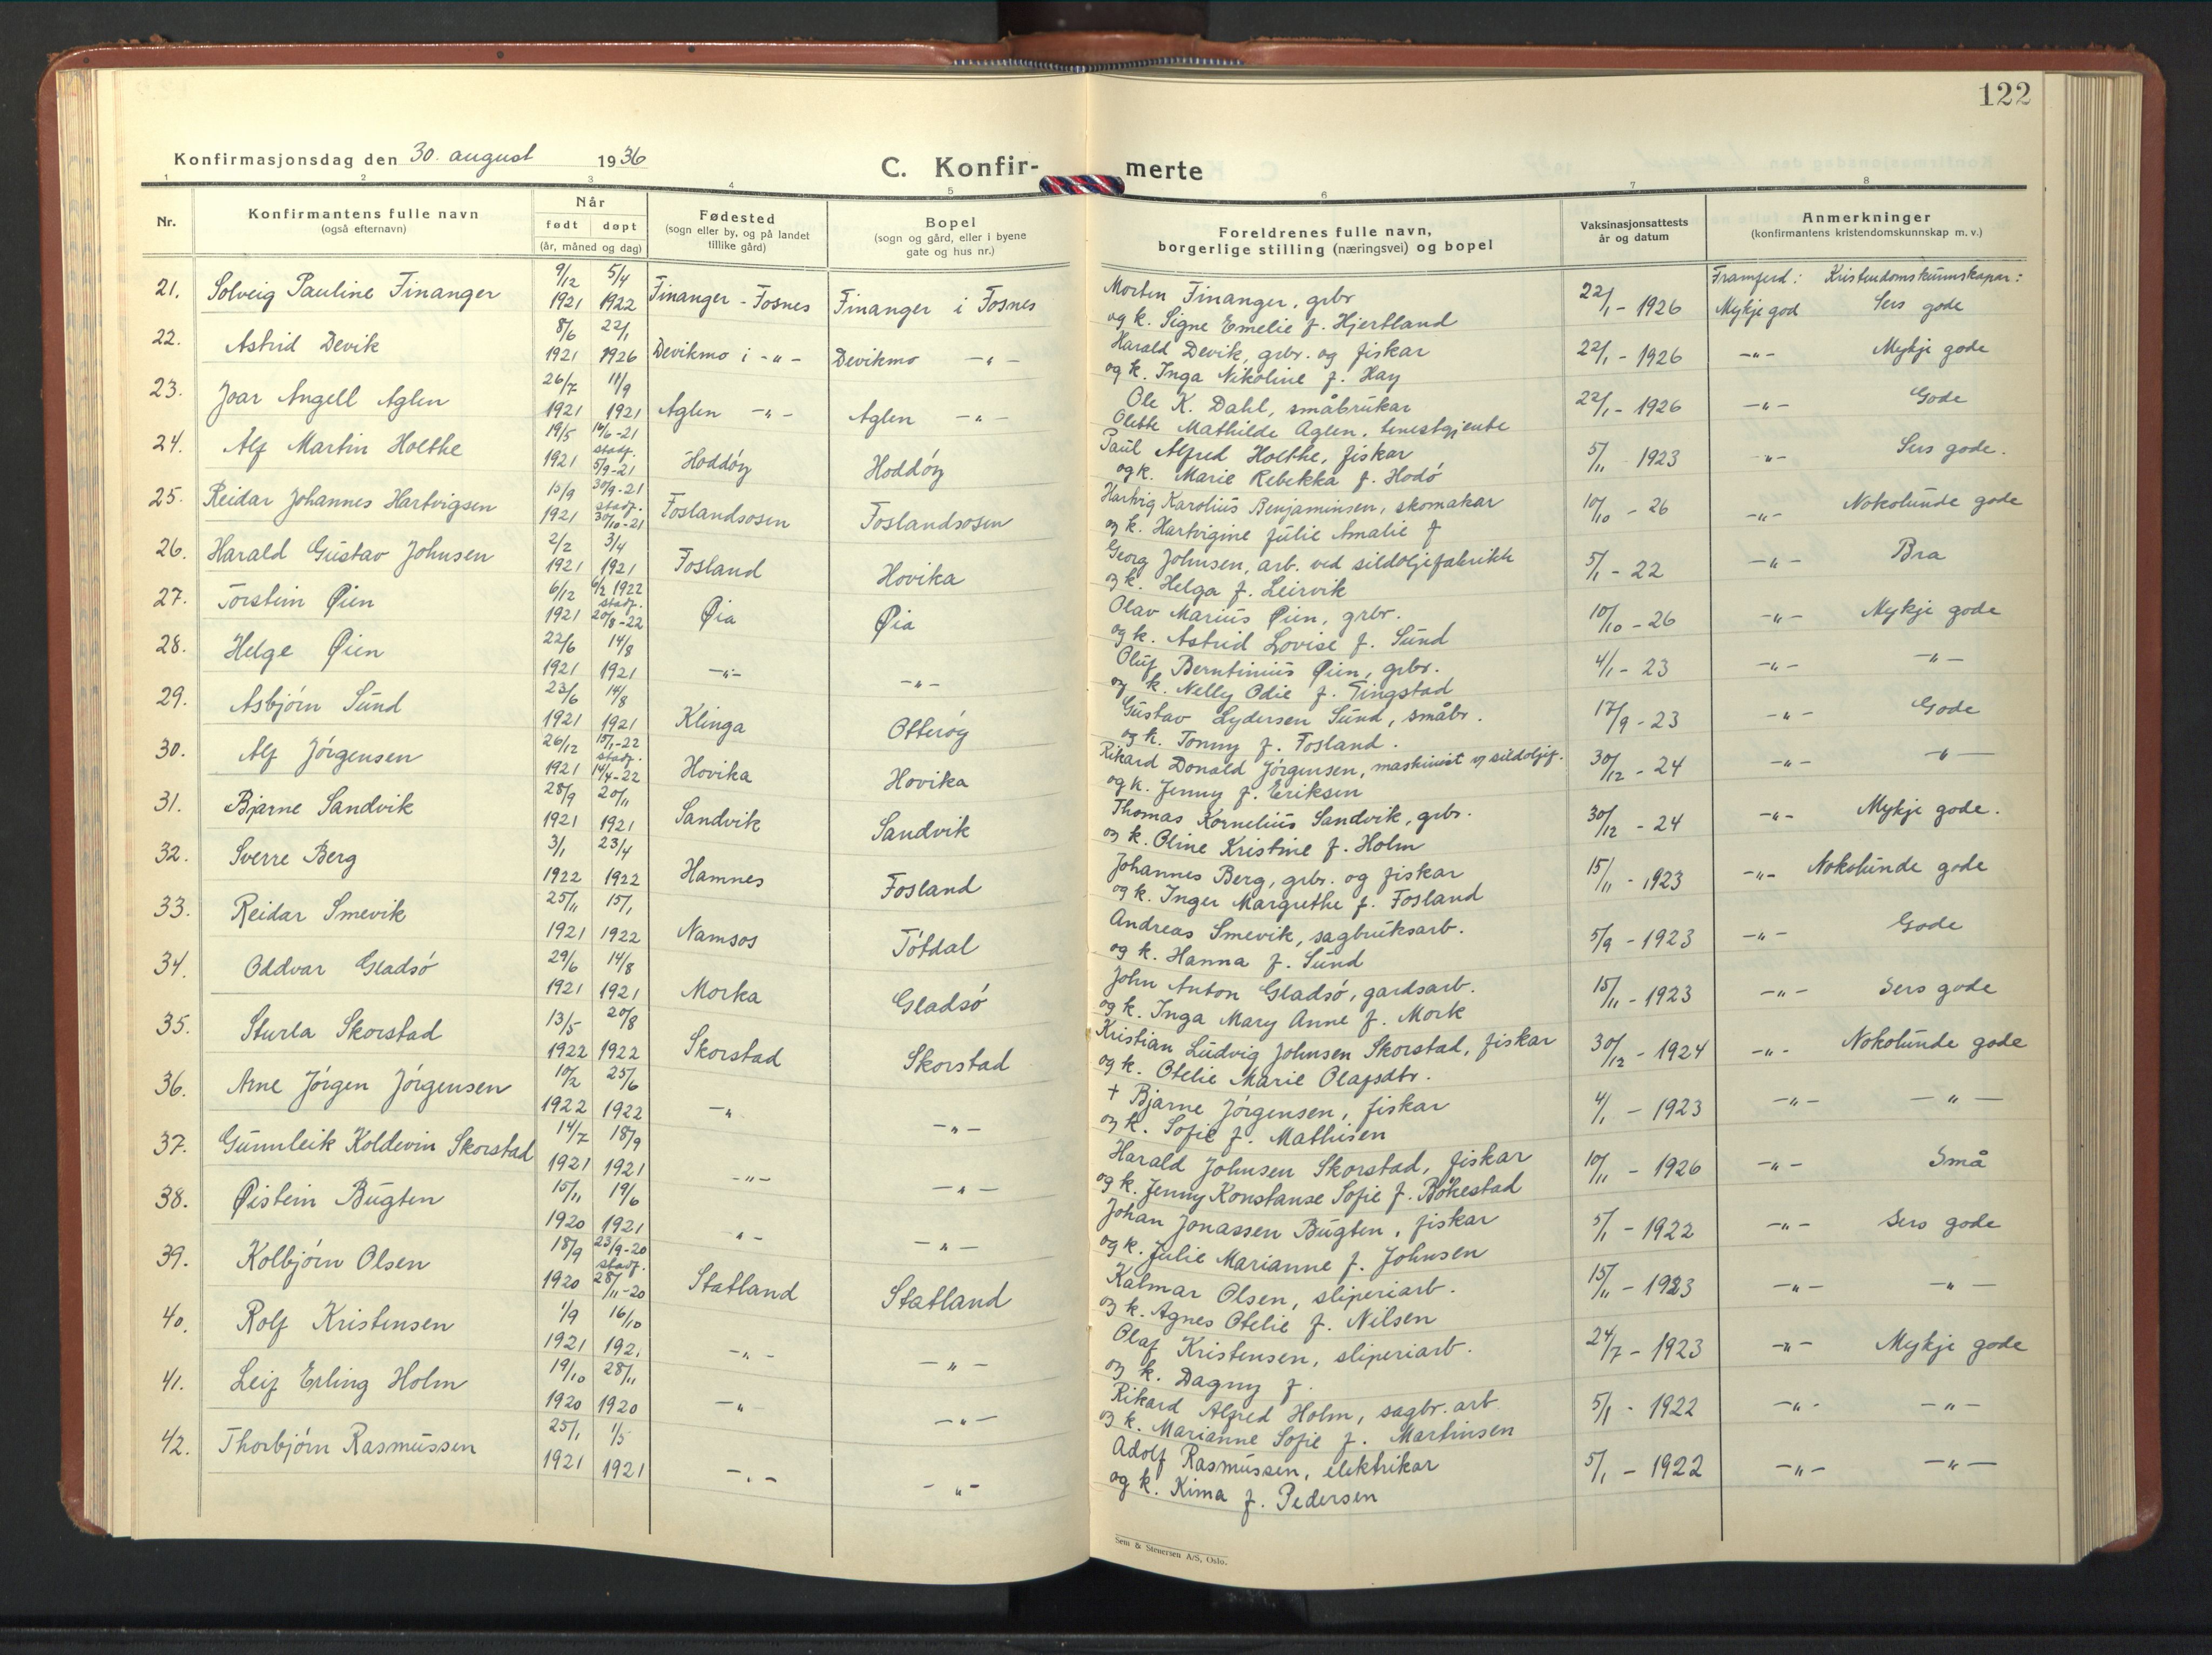 122
Konfirmasjonsdag den 30. august 1936
C. Konfir- merte
1 2 3 4 5 6 7 8
Nr.
Konfirmantens fulle navn
(også efternavn)
Når
født døpt
(år, måned og dag)
Fødested
(sogn eller by, og på landet
tillike gård)
Bopel
(sogn og gård, eller i byene
gate og hus nr.)
Foreldrenes fulle navn,
borgerlige stilling (næringsvei) og bopel
Vaksinasjonsattests
år og datum
Anmerkninger
(konfirmantens kristendomskunnskap m. v.)
Framferd: Kristendomskunnskapar:
21. Solveig Pauline Finanger 9/12 1921 5/4 1922 Finanger - Fosnes Finanger i Fosnes Morten Finanger, grbr 22/1 - 1926 Mykje god Sers gode
og k. Signe Emelie f. Hjertland
22. Astrid Devik 8/6 1921 22/1 1926 Devikmo i -"- Devikmo -"- Harald Devik, grbr. og fiskar 22/1 - 1926 -"- Mykje gode
og k. Inga Nikoline f. Hay
23. Joar Angell Aglen 26/7 1921 11/9 1921 Aglen -"- Aglen -"- Ole K. Dahl, småbrukar 22/1 - 1926 -"- Gode
Olette Mathilde Aglen, tenestgjente
24. Alf Martin Holthe 19/5 1921 16/6-21 stadf. 5/9-21 Hoddöy Hoddöy Paul Alfred Holthe, fiskar 5/11 - 1923 -"- Sers gode.
og k. Marie Rebekka f. Hodö
25. Reidar Johannes Hartvigsen 15/9 1921 30/9-21 stadf. 30/10-21 Foslandsosen Foslandsosen Hartvig Karolius Benjaminsen, skomakar 10/10 - 26 -"- Nokolunde gode
og k. Hartvigine Julie Amalie f
26. Harald Gustav Johnsen 2/2 1921 3/4 1921 Fosland Hovika Georg Johnsen, arb. ved sildoljefabrikk 5/1 - 22 -"- Bra
og k. Helga f. Leirvik
27. Torstein Øien 6/12 1921 6/2 1922 stadf. 20/8-22 Øia Øia Olav Marius Øien, grbr. 10/10 - 26 -"- Mykje gode
og k. Astrid Lovise f. Sund
28. Helge Øien 22/6 1921 14/8 1921 -"- -"- Oluf Berntinius Øien, grbr. 4/1 - 23 -"- -"-
og k. Nelly Odie f. Tingstad
29. Asbjörn Sund 23/6 1921 14/8 1921 Klinga Otteröy Gustav Lydersen Sund, småbr. 17/9 - 23 -"- Gode
og k. Tonny f. Fosland.
30. Alf Jörgensen 26/12 1921 15/1-22 stadf. 14/4-22 Hovika Hovika Rikard Donald Jörgensen, maskinist v/ sildoljef. 30/12 - 24 -"- -"-
og k. Jenny f. Eriksen
31. Bjarne Sandvik 28/9 1921 20/11 1921 Sandvik Sandvik Thomas Kornelius Sandvik, grbr. 30/12 - 24 -"- Mykje gode.
og k. Oline Kristine f. Holm
32. Sverre Berg 3/1 1922 23/4 1922 Hamnes Fosland Johannes Berg, grbr. og fiskar 15/11 - 1923 -"- Nokolunde gode
og k. Inger Margrethe f. Fosland
33. Reidar Smevik 25/11 1921 15/1 1922 Namsos Tötdal Andreas Smevik, sagbruksarb. 5/9 - 1923 -"- Gode
og k. Hanna f. Sund
34. Oddvar Gladsö 29/6 1921 14/8 1921 Morka Gladsö John Anton Gladsö, gardsarb. 15/11 - 1923 -"- Sers gode
og k. Inga Mary Anne f. Mork
35. Sturla Skorstad 13/5 1922 20/8 1922 Skorstad Skorstad Kristian Ludvig Johnsen Skorstad, fiskar 30/12 - 1924 -"- Nokolunde gode
og k. Otelie Marie Olafsdtr.
36. Arne Jörgen Jörgensen 10/2 1922 25/6 1922 -" -"- + Bjarne Jörgensen, fiskar 4/1 - 1923 -"- -"-
og k. Sofie f. Mathisen
37. Gunnleik Koldevin Skorstad 14/7 1921 18/9 1921 -"- -"- Harald Johnsen Skorstad, fiskar 10/11 - 1926 -"- Små
og k. Jenny Konstanse Sofie f. Bökestad
38. Øistein Bugten 15/11 1920 19/6 1921 "- -"- Johan Jonassen Bugten, fiskar 5/1 - 1922 -"- Sers gode
og k. Julie Marianne f. Johnsen
39. Kolbjörn Olsen 18/9 1920 23/9-20 stadf. 28/11-20 Statland Statland Kalmar Olsen, sliperiarb. 15/11 - 1923 -"- -"-
og k. Agnes Otelie f. Nilsen
40. Rolf Kristensen 1/9 1921 16/10 1921 -"- -"- Olaf Kristensen, sliperiarb. 24/7 - 1923 -"- Mykje gode
og k. Dagny f.
41. Leif Erling Holm 19/10 1920 28/11 1920 -" -"- Rikard Alfred Holm, sagbr. arb. 5/1 - 1922 -"- -"-
og k. Marianne Sofie f. Martinsen
42. Thorbjörn Rasmussen 25/1 1921 1/5 1921 -"- -"- Adolf Rasmussen, elektrikar 5/1 - 1922 -"- -"-
og k. Kima f. Pedersen
Sem & Stenersen A/S, Oslo.